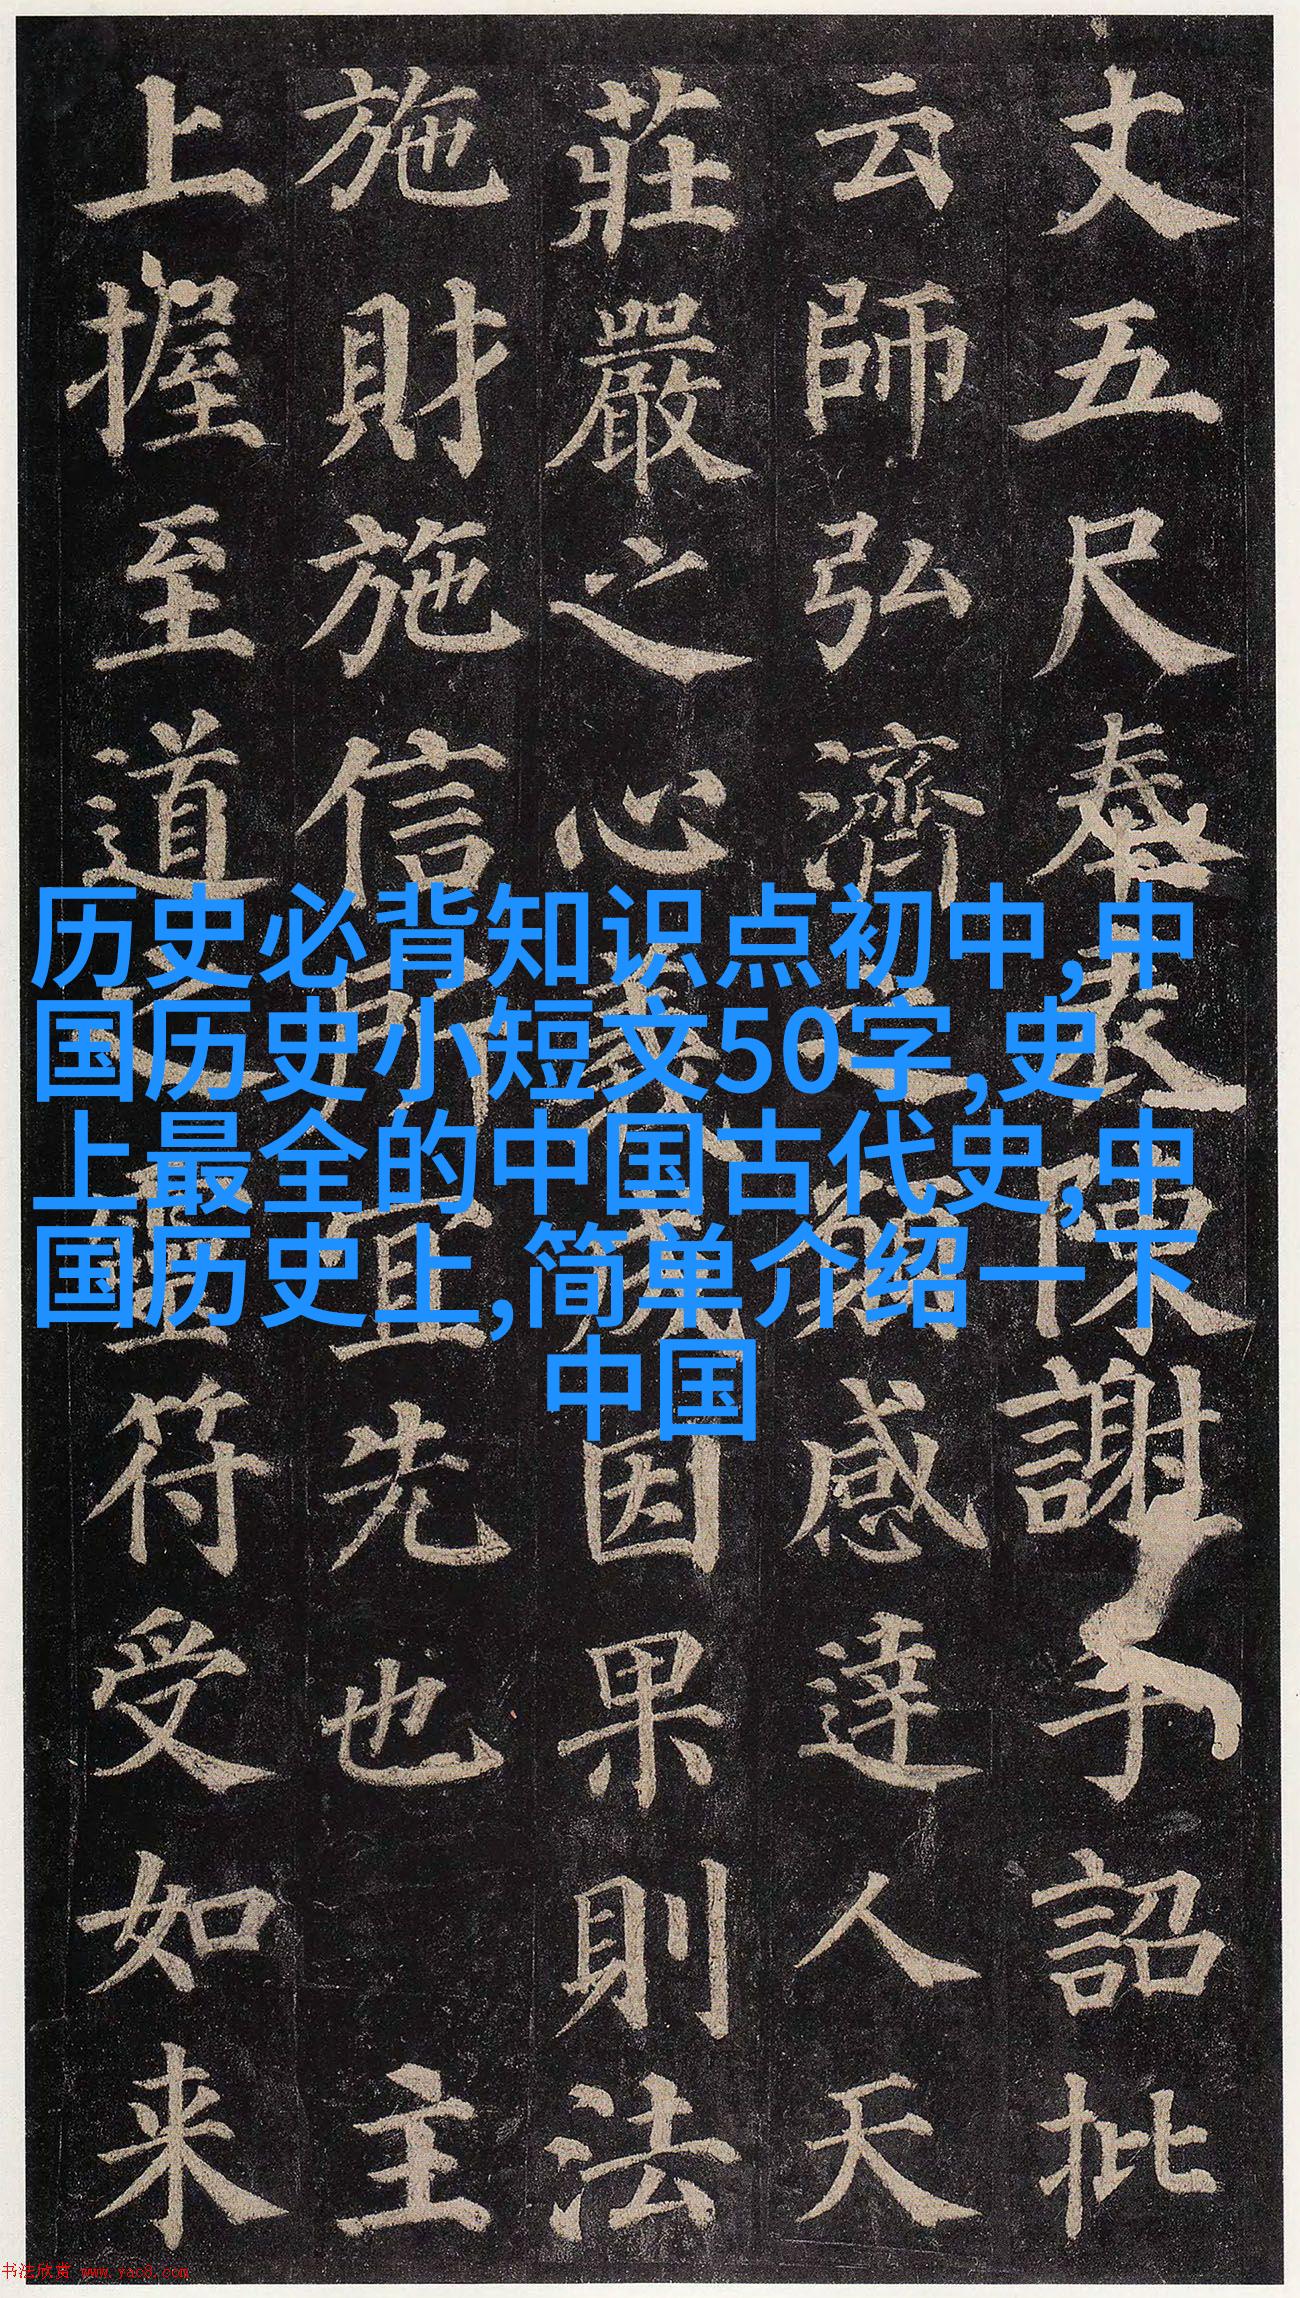 历史必背知识点初中,中
国历史小短文50字,史
上最全的中国古代史,中
国历史上,简单介绍一下
中国
丈五尺奉表陳謝手詔批
云師弘濟之願感達人天
莊嚴之心義因果則法
施財施信所宜先也主
上握至道之靈符受如来
书法欣赏 www.yac8.com